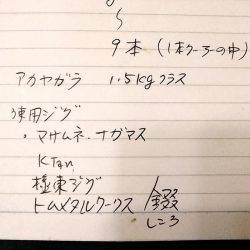 〜
9本（1本クーラーの中）
アカヤガラ 1.5kgクラス
使用ジグ
・マサムネ、ナガマス
KTan
極東ジグ
トムメタルワークス 錣
しころ